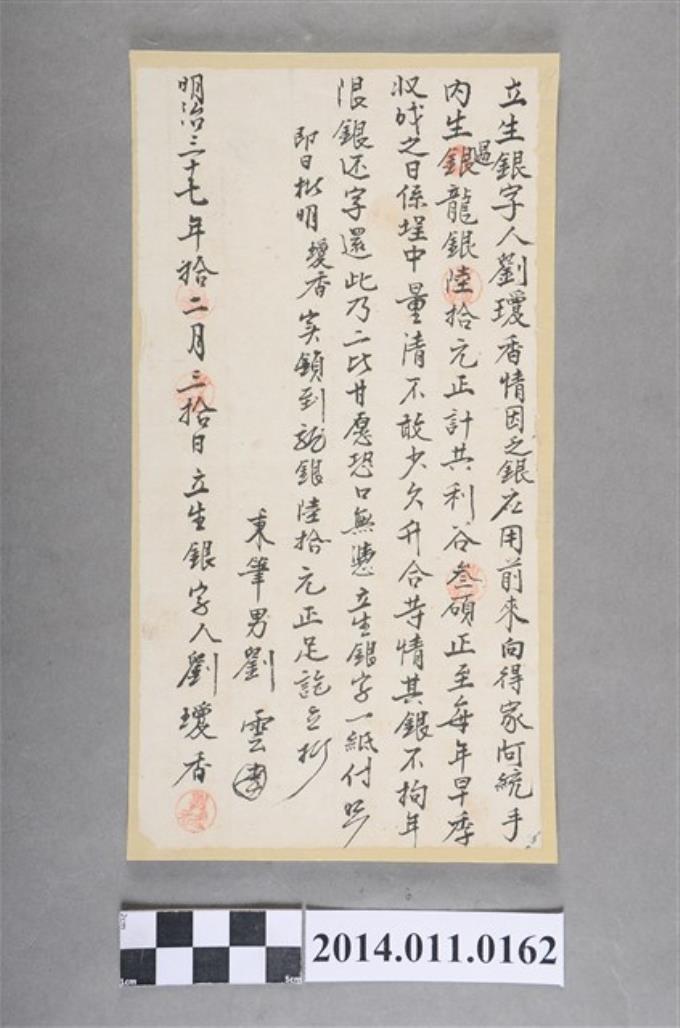 立生銀字人劉瓊香情因乏銀应用前來向得家阿統手
內生過銀龍銀陸拾元正計共利谷叁碩正至每年早季
收成之日係埕中量清不敢少欠升合等情其銀不拘年
限銀还字還此乃二比甘愿恐口無憑立生銀字一紙付照
即日批明瓊香实領到龍銀陸拾元正足訖立批
秉筆男劉雲
明治三十七年拾二月三拾日立生銀字人劉瓊香
2014.011.0162
1cm
5cm